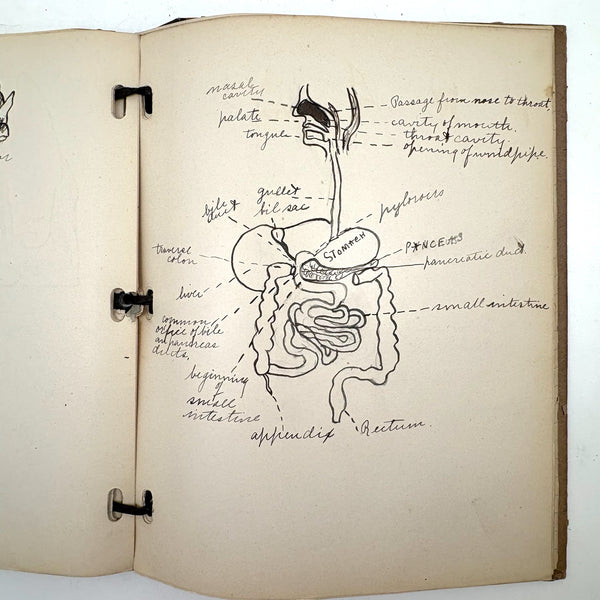 nasal
cavity
palate
tongue
Passage from nose to throat,
cavity of mouth.
throat cavity.
opening of windpipe.
gullet
bile
duct
bil sac
pylorous
STOMACH
PANCEAS
pancreatic duct.
traversl
colon
liver
small intestine
common
orifice of bile
an pancreas
ducts,
beginning
of
small
intestine
appendix
Rectum.